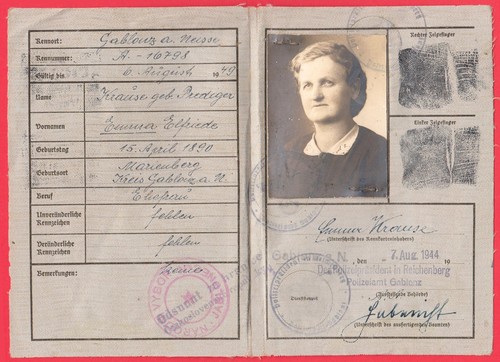 Kennort: Gablonz a. Neisse
Kennummer: A.-16798
Gültig bis 6. August 1949
Name Krause geb. Prediger
Vornamen Emma Elfriede
Geburtstag 15. April 1890
Geburtsort Marienberg
Kreis Gablonz a. N.
Beruf Ehefrau
Unveränderliche Kennzeichen fehlen
Veränderliche Kennzeichen fehlen
Bemerkungen: keine
Odsunut
Rechter Zeigefinger
Linker Zeigefinger
Emma Krause
(Unterschrift des Kennkarteninhabers)
Gablonz a. N., den 7. Aug. 1944 19
Der Polizeipräsident in Reichenberg
Polizeiamt Gablonz
(Ausstellende Behörde)
Dienststempel
(Unterschrift des ausfertigenden Beamten)